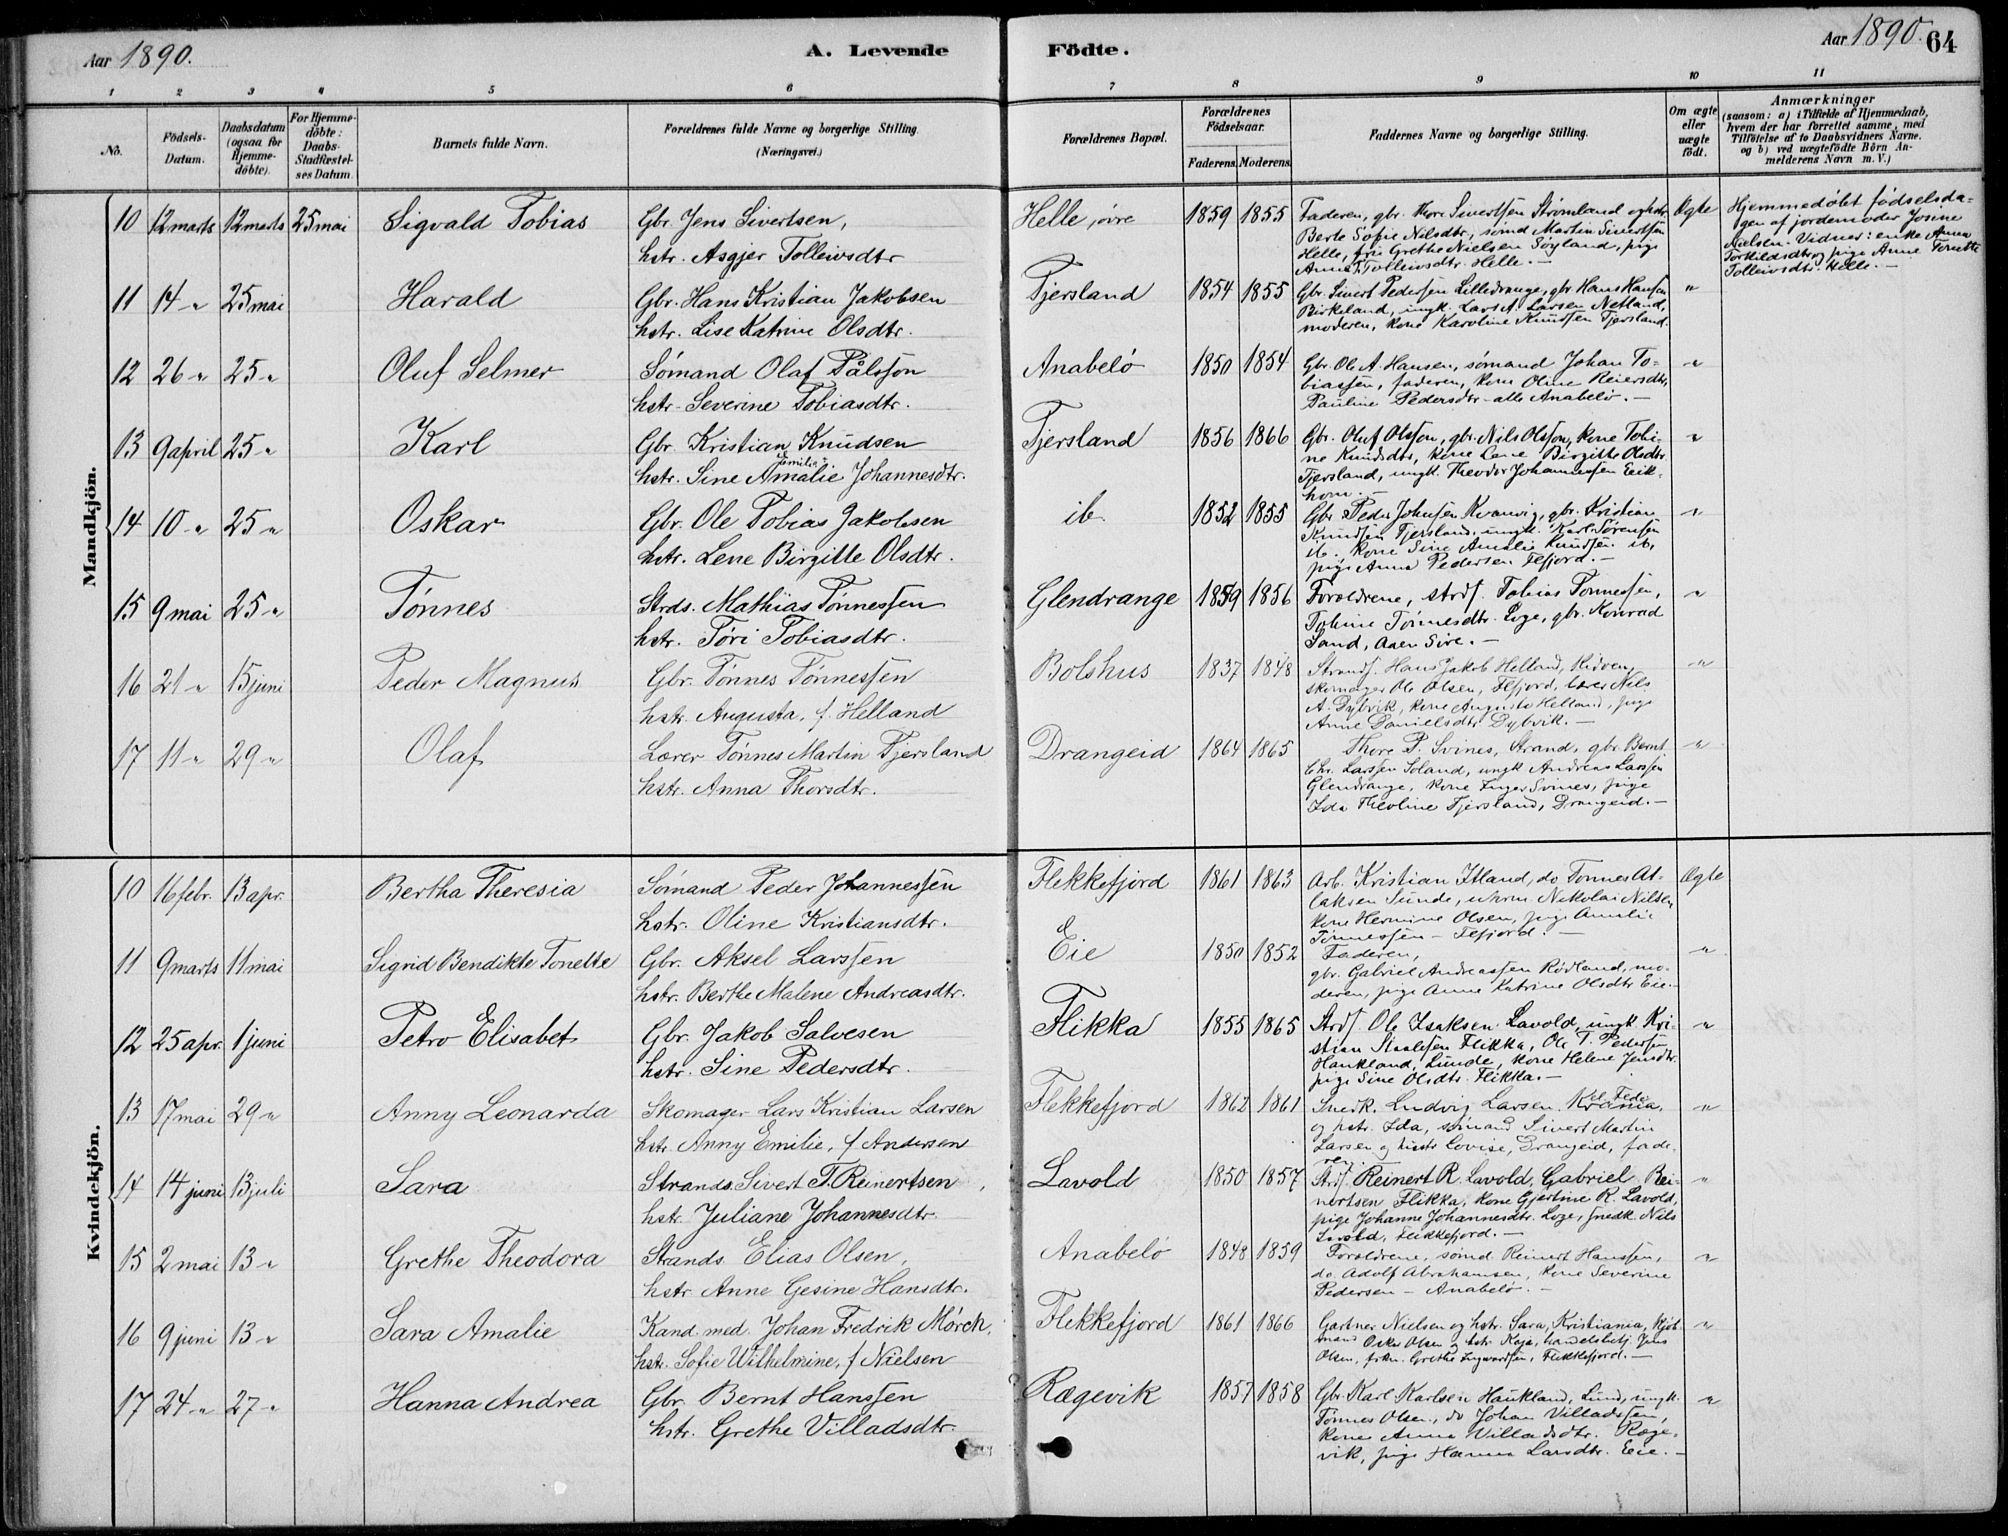 Aar 1890.
A. Levende
Födte.
Aar 1890.
64
1 2 3 4 5 6
7 8 9 10 11
No.
Födsels-Datum.
Daabsdatum (ogsaa for Hjemme-döbte).
For Hjemme-döbte: Daabs-Stadfæstel-ses Datum.
Barnets fulde Navn.
Forældrenes fulde Navne og borgerlige Stilling. (Næringsvei.)
Forældrenes Bopæl.
Forældrenes Födselsaar.
Faderens. Moderens.
Faddernes Navne og borgerlige Stilling.
Om ægte eller uægte födt.
Anmærkninger
(saasom: a) i Tilfælde af Hjemmedaab, hvem der har forrettet samme, med Tilföielse af to Daabsvidners Navne. og b) ved uægtefödte Börn An-melderens Navn m. V.)
Mandkjön.
10 12 marts 12 marts 25 mai Sigvald Tobias Gbr. Jens Sivertsen,
hstr. Asgjer Tolleivsdtr
Helle, øvre 1859 1855 Faderen, gbr. Thore Sivertsen Strømland og hstr.
Berte Sofie Nilsdtr., sømd Martin Sivertsen
Helle, fru Grethe Nielsen Søyland, pige
Anna T. Tolleivsdtr. Helle. –
Ægte Hjemmedøbt fødselsda-
gen af jordemoder Josine
Nielsen. Vidner: enke Anna
Torkildsdtr og pige Anne Tonette
Tolleivsdtr. Helle. –
11 14 " 25 mai Harald Gbr. Hans Kristian Jakobsen
hstr. Lise Katrine Olsdtr.
Tjersland 1854 1855 Gbr. Sivert Pedersen Lilledrange, gbr Hans Hansen
Birkeland, ungk. Lars A. Larsen Netland,
moderen, kone Karoline Knudsen Tjersland. "
12 26 " 25 " Oluf Selmer Sømand Olaf Pålsson
hstr. Severine Tobiasdtr.
Anabelø 1850 1854 Gbr. Ole A. Hansen, sømand Johan To-
biassen, faderen, kone Oline Reiersdtr,
Pauline Pedersdtr – alle Anabelø. – "
13 9 april 25 " Karl Gbr. Kristian Knudsen
hstr. Sine Amalie Johannesdtr.
Tjersland 1856 1866 Gbr. Oluf Olsson, gbr. Nils Olsson, kone Tobi-
ne Knudsdtr, kone Lene Birgitte Olsdtr
Tjersland, ungk. Theodor Johannessen Eik-
hom. – "
14 10 " 25 " Oskar Gbr. Ole Tobias Jakobsen
hstr. Lene Birgitte Olsdtr.
ib 1852 1855 Gbr. Peder Johnsen Kvanvig, gbr. Kristian
Knudsen Tjersland, ungk. Karl Sørensen
ib., kone Sine Amalie Knudsen ib,
pige Anna Pedersen Ffjord. – "
15 9 mai 25 " Tønnes Strds. Mathias Tønnessen
hstr. Tøri Tobiasdtr.
Glendrange 1859 1856 Forældrene, strds. Tobias Tønnessen,
Tønnesdtr. Loge, gbr. Konrad
Sand, Aaen Sire. – "
16 21 " 15 juni Peder Magnus Gbr. Tønnes Tønnessen
hstr. Augusta, f. Helland
Bolshus 1837 1848 Strands. Hans Jakob Helland,
skomager Ole Olsen, Ffjord, lærer Nils
A. Dybvik, kone Augusta Helland, pige
Anne Danielsdtr. Dybvik. – "
17 11 " 29 " Olaf Lærer Tønnes Martin Tjersland
hstr. Anna Thorsdtr.
Drangeid 1864 1865 Thore P. Svines, Strand, gbr. Bernt
Chr. Larssen Soland, ungk Andreas Larssen
Glendrange, kone Inger Svines, pige
Ida Theoline Tjersland, Drangeid. – "
Kvindekjön.
10 16 febr. 13 apr. Bertha Theresia Sømand Peder Johannessen
hstr. Oline Kristiansdtr.
Flekkefjord 1861 1863 Arb. Kristian Itland, do Tønnes At-
laksen Sunde, uhrm. Nikolai Nilsen
kone Hermine Olsen, pige Amalie
Tønnessen – Ffjord. – Ægte
11 9 marts 11 mai Sigrid Bendikte Tonette Gbr. Aksel Larssen
hstr. Berthe Malene Andreasdtr.
Eie 1850 1852 Faderen,
gbr. Gabriel Andreassen Rødland, mo-
deren, pige Anne Katrine Olsdtr Eie. – "
12 25 apr. 1 juni Petro Elisabet Gbr. Jakob Salvesen
hstr. Sine Pedersdtr.
Flikka 1855 1865 Strds. Ole Isaksen Lavold, ungk. Kri-
stian Staalesen Flikka, Ole T. Pedersen
Haukland, Lunde, kone Helene Jensdtr.
pige Sine Olsdtr. Flikka. – "
13 17 mai 29 " Anny Leonarda Skomager Lars Kristian Larsen
hstr. Anny Emilie, f Andersen
Flekkefjord 1862 1861 Snedk. Ludvig Larsen,
og hstr. Ida, sømand Sivert Martin
Larsen og hustr Lovise, Drangeid, fade-
ren. "
14 14 juni 13 juli Sara Strands. Sivert T. Reinertsen
hstr. Juliane Johannesdtr.
Lavold 1850 1857 Strds. Reinert R. Lavold, Gabriel Rei-
nertsen Flikka, kone Gjertine R. Lavold,
pige Johanne Johannesdtr. Loge, snedk. Nils
Flekkefjord. – "
15 2 mai 13 " Grethe Theodora Strands. Elias Olsen,
hstr Anne Gesine Hansdtr.
Anabelø 1848 1859 Forældrene, sømd Reinert Hanssen,
do. Adolf Abrahamsen, kone Severine
Pedersen – Anabelø. – "
16 9 juni 13 " Sara Amalie Kand. med. Johan Fredrik Mörch,
hstr. Sofie Wilhelmine, f Nielsen
Flekkefjord 1861 1866 Gartner Nielsen og hstr. Sara, Kristiania, kjøb-
mand Oskar Olsen og hstr. Kaja, handelsbetj Jens
Olsen, frkn. Grethe Ingwardsen, Flekkefjord. – "
17 24 " 27 " Hanna Andrea Gbr. Bernt Hanssen
hstr. Grethe Villadsdtr.
Rægevik 1857 1858 Gbr. Karl Karlsen Haukland, Lund, ungk.
Tønnes Olsen, do Johan Villadssen,
kone Anna Villadsdtr. Ræge-
vik, pige Hanna Larsdtr. Eie. – "